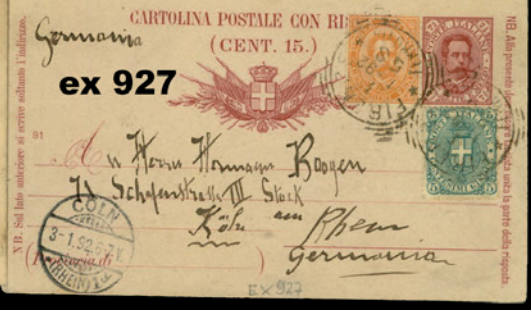 CARTOLINA POSTALE CON RI
(CENT. 15.)
Germania
ex 927
NB. Sul lato anteriore si scrive soltanto l'indirizzo.
NB. Alla presente
unita la parte della risposta.
POSTE ITALIANE
91
An Herrn Hermann
Schafenstrasse III Stock
Köln am Rhein
Germania
CÖLN
3-1.92.6-7.V.
(RHEIN) 1
FIR
EX 927